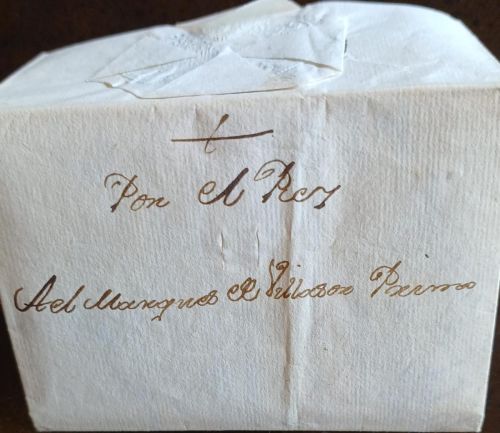 Por el Rey
Ael Marques de Villasor Primo